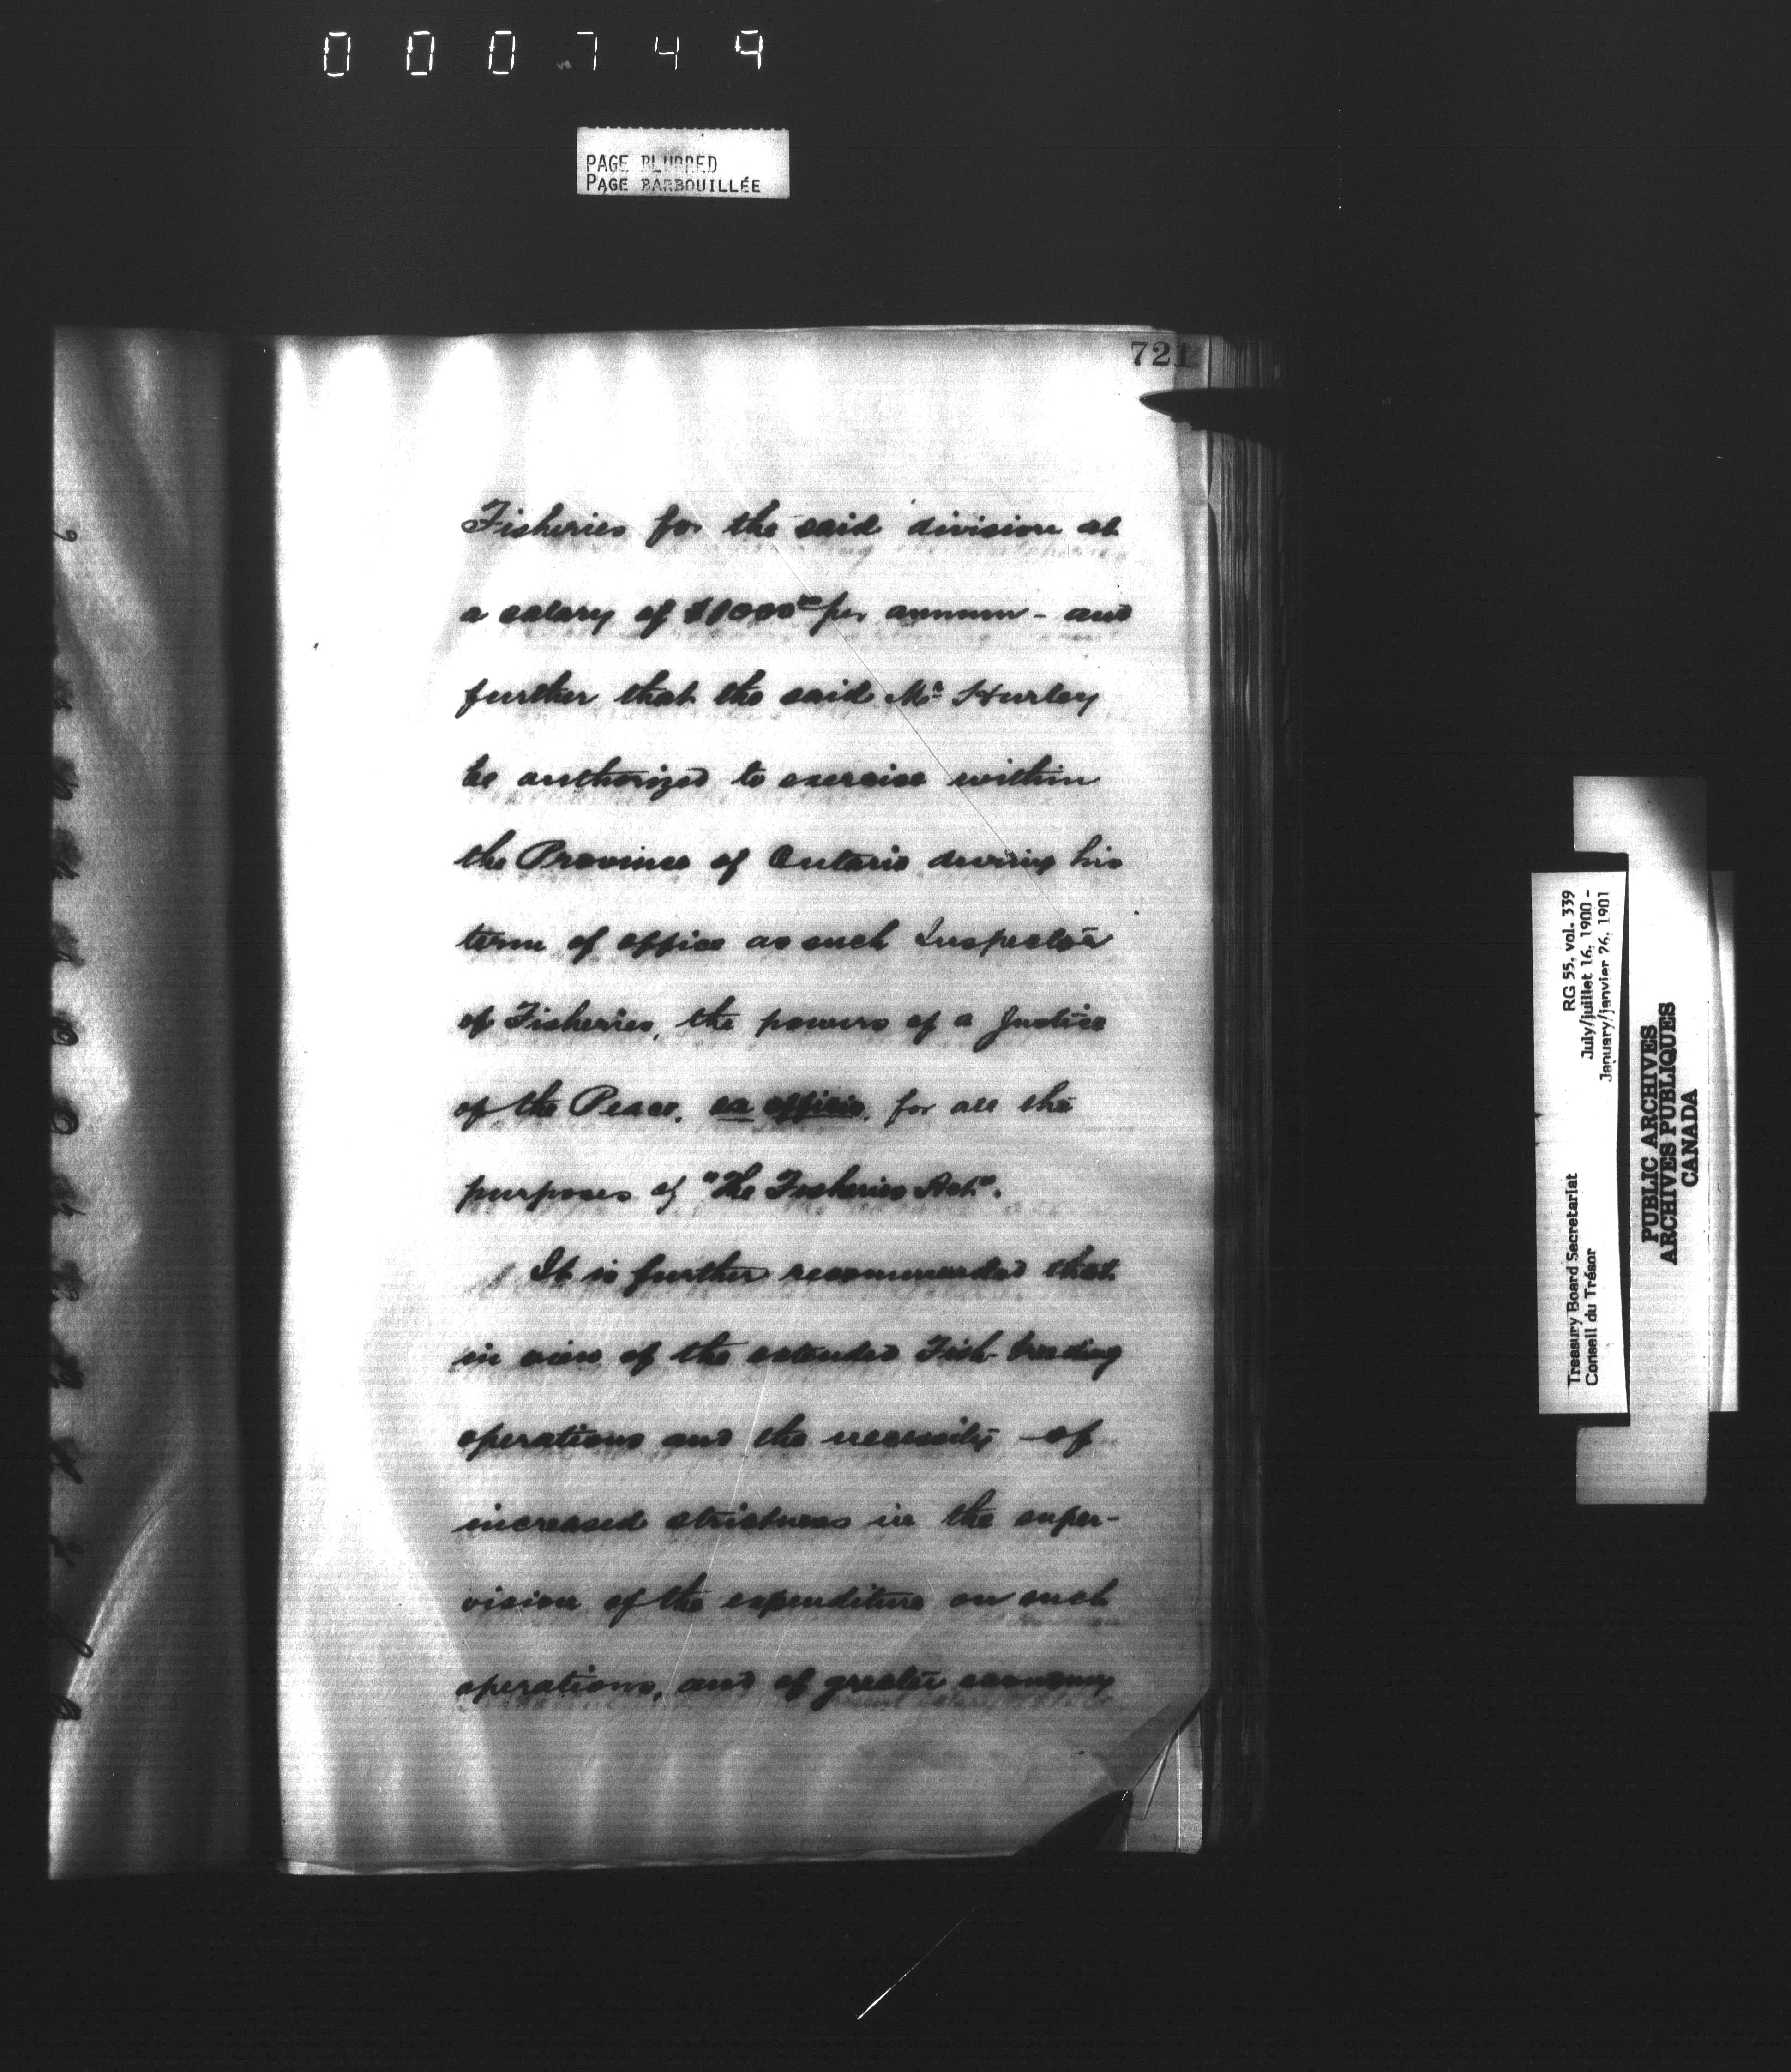 000749
PAGE BLURRED
PAGE BARBOUILLÉE
721
Fisheries for the said division at
a salary of $1000⁰⁰ per annum - and
further that the said Mr Hurley
be authorized to exercise within
the Province of Ontario during his
term of office as such Inspector
of Fisheries, the powers of a Justice
of the Peace, ex officio, for all the
purposes of "The Fisheries Act".
It is further recommended that
in view of the extended Fish-breeding
operations and the necessity of
increased strictness in the super-
vision of the expenditure on such
operations, and of greater economy
Treasury Board Secretariat RG 55, vol. 339
Conseil du Trésor July/juillet 16, 1900 -
January/janvier 26, 1901
PUBLIC ARCHIVES
ARCHIVES PUBLIQUES
CANADA